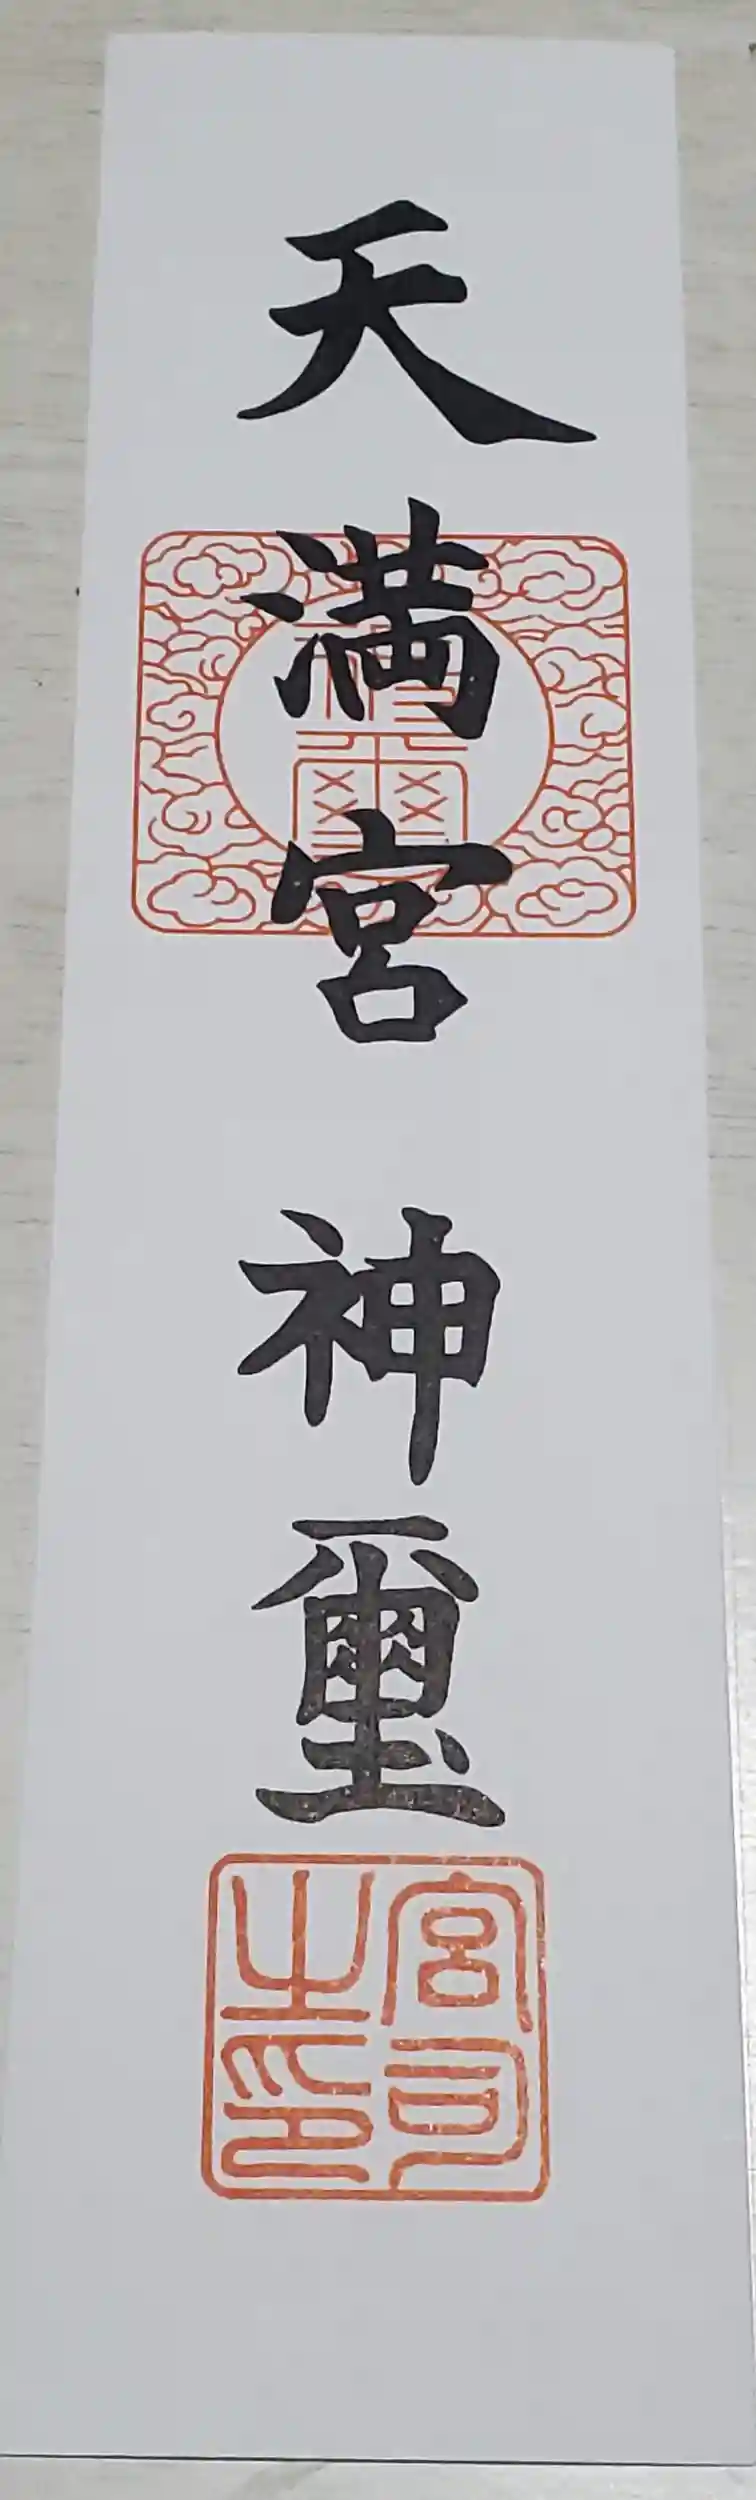 天満宮 神璽
神璽
宮司
之印